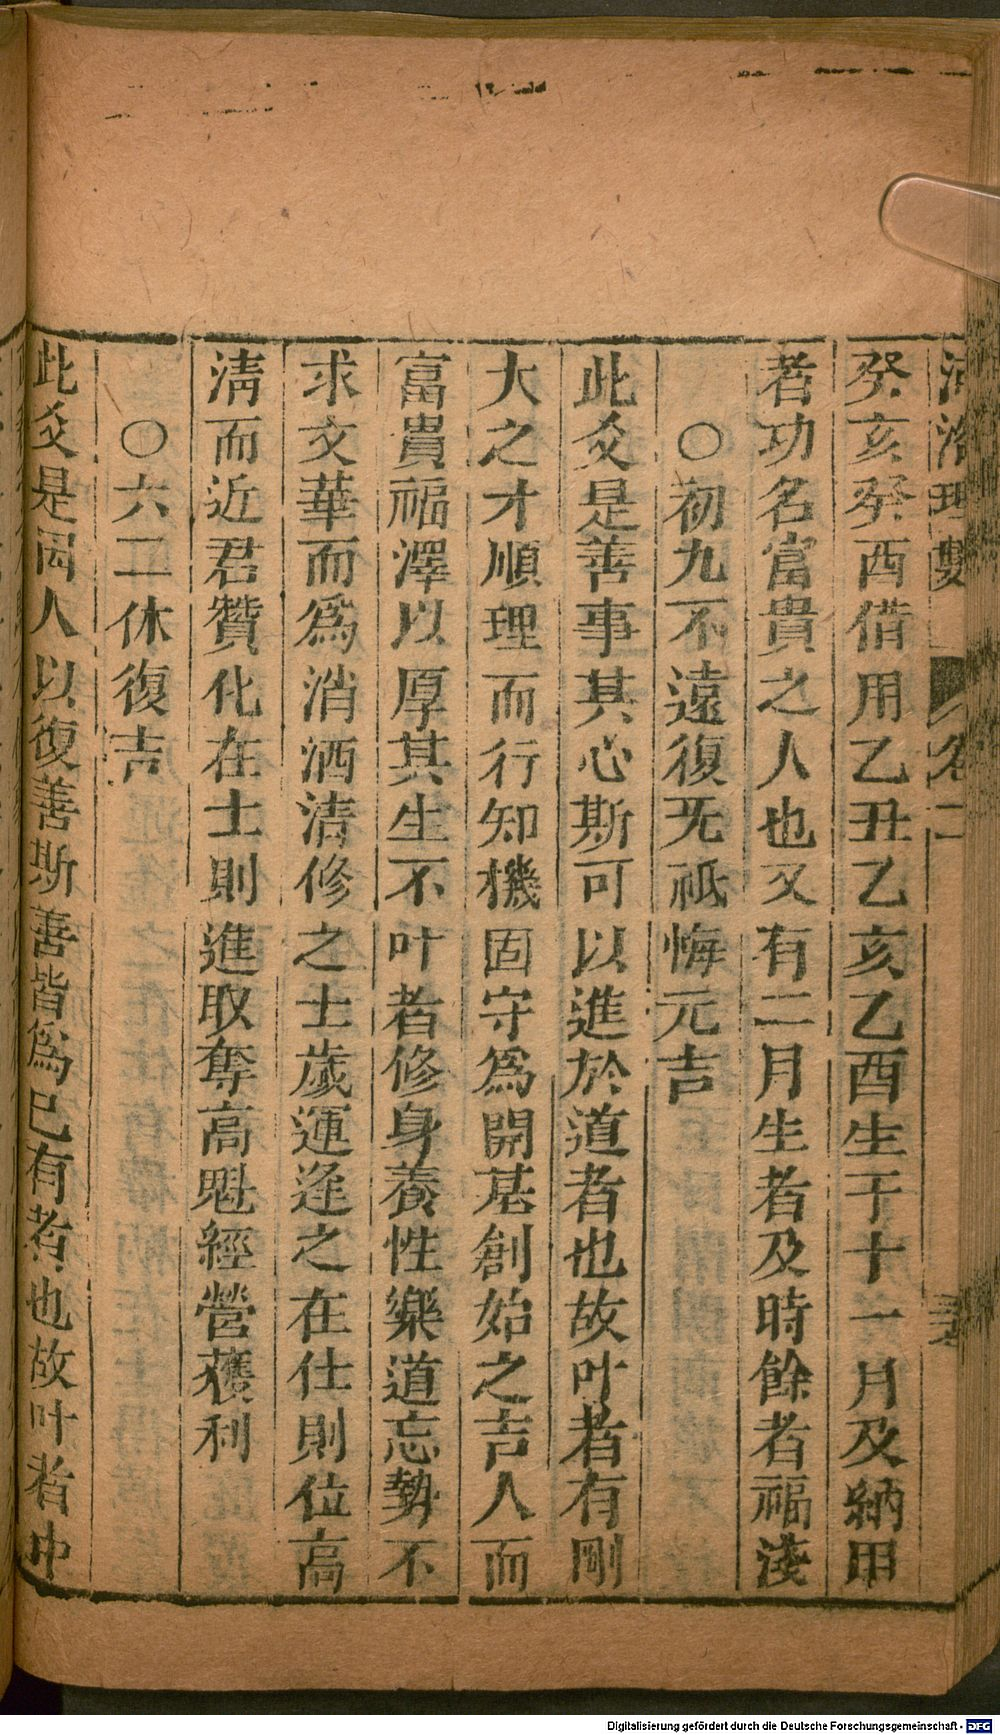 河洛理數 卷二
癸亥癸酉借用乙丑乙亥乙酉生于十一月及納甲
者功名富貴之人也又有二月生者及時餘者福淺
○初九不遠復无祗悔元吉
此爻是善事其心斯可以進於道者也故叶者有剛
大之才順理而行知機固守爲開基創始之吉人而
富貴福澤以厚其生不叶者修身養性樂道忘勢不
求文華而爲消洒清修之士歲運逢之在仕則位高
清而近君贊化在士則進取奪高魁經營獲利
○六二休復吉
此爻是因人以復善斯善皆爲已有者也故叶者中
Digitalisierung gefördert durch die Deutsche Forschungsgemeinschaft - DFG